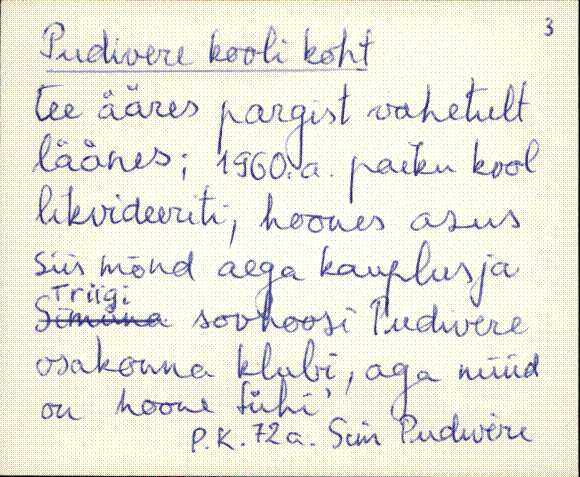 3
Pudivere kooli koht
tee ääres pargist vahetult
läänes; 1960. a. paiku kool
likvideeriti, hoones asus
siis mõnd aega kauplus ja
Triigi
Simuna sovhoosi Pudivere
osakonna klubi, aga nüüd
on hoone tühi.
P.K. 72 a. Sim Pudivere